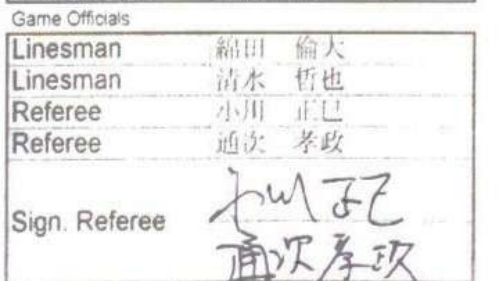 Game Officials
Linesman 綿田 倫大
Linesman 清水 哲也
Referee 小川 正巳
Referee 通次 孝政
Sign. Referee 小川 正己
通次 孝政